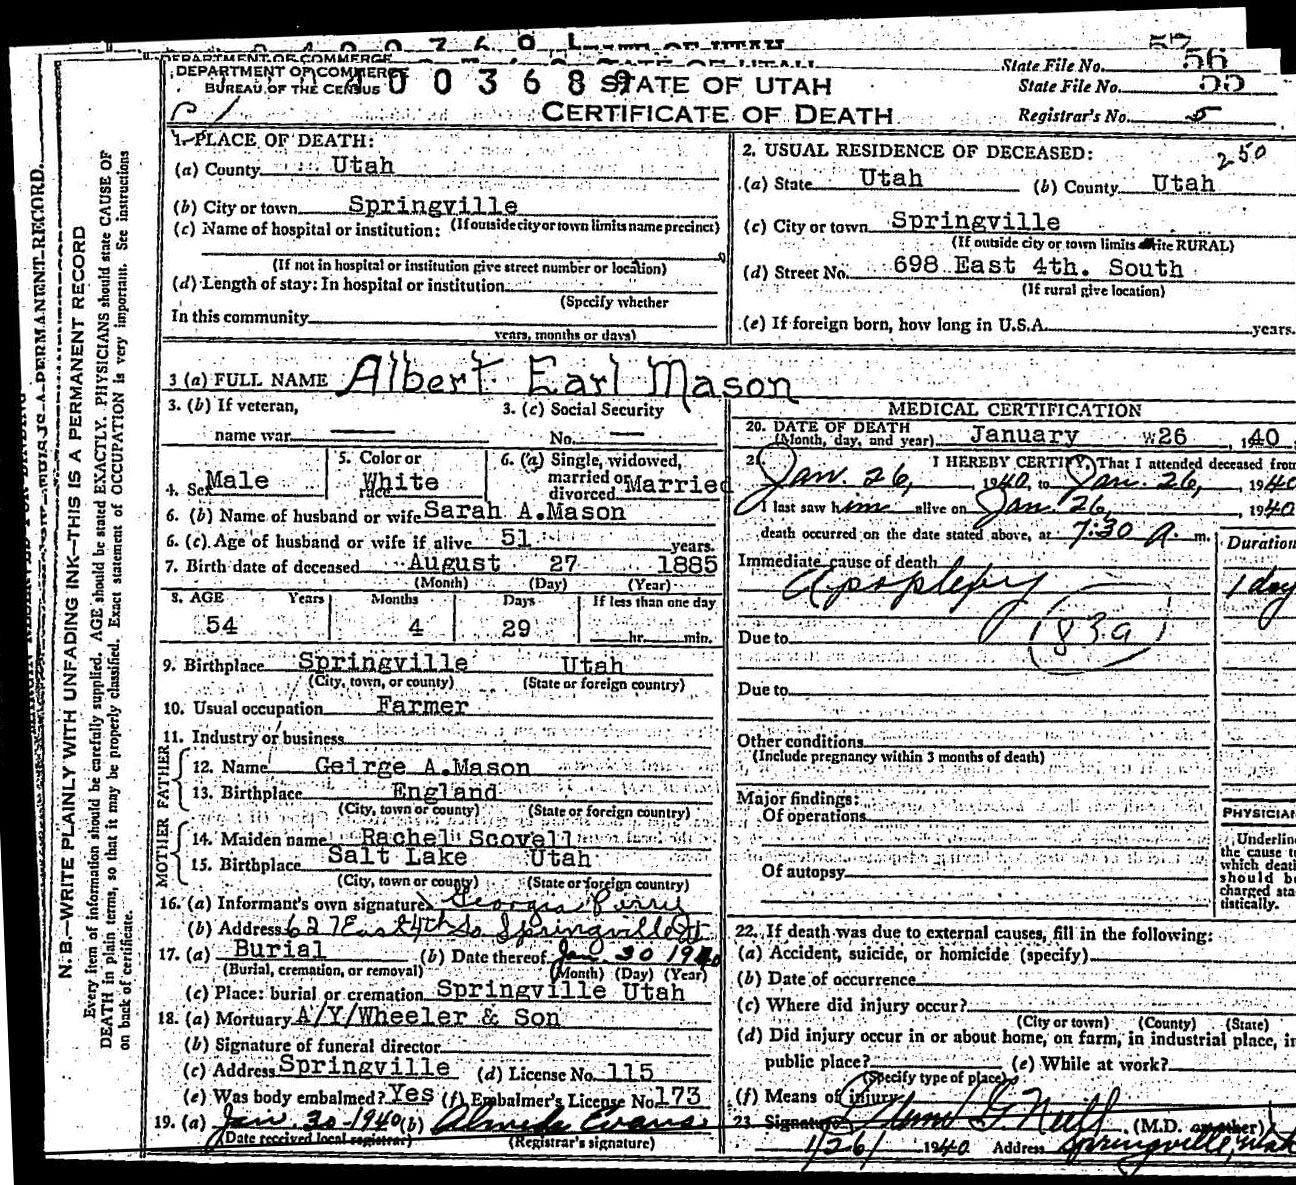 DEPARTMENT OF COMMERCE
BUREAU OF THE CENSUS
STATE OF UTAH
CERTIFICATE OF DEATH
State File No. 57
State File No. 56
State File No. 55
Registrar's No. 5
MARGIN RESERVED FOR BINDING
N. B.—WRITE PLAINLY WITH UNFADING INK—THIS IS A PERMANENT RECORD
Every item of information should be carefully supplied. AGE should be stated EXACTLY. PHYSICIANS should state CAUSE OF
DEATH in plain terms, so that it may be properly classified. Exact statement of OCCUPATION is very important. See instructions
on back of certificate.
1. PLACE OF DEATH:
(a) County Utah
(b) City or town Springville
(If outside city or town limits name precinct)
(c) Name of hospital or institution:
(If not in hospital or institution give street number or location)
(d) Length of stay: In hospital or institution
(Specify whether
In this community
years, months or days)
2. USUAL RESIDENCE OF DECEASED: 250
(a) State Utah (b) County Utah
(c) City or town Springville
(If outside city or town limits write RURAL)
(d) Street No. 698 East 4th. South
(If rural give location)
(e) If foreign born, how long in U.S.A. years.
3 (a) FULL NAME Albert Earl Mason
3. (b) If veteran,
name war —
3. (c) Social Security
No. —
4. Sex Male
5. Color or
race White
6. (a) Single, widowed,
married or
divorced Married
6. (b) Name of husband or wife Sarah A.Mason
6. (c) Age of husband or wife if alive 51 years.
7. Birth date of deceased August 27 1885
(Month) (Day) (Year)
8. AGE Years Months Days If less than one day
54 4 29 hr. min.
9. Birthplace Springville Utah
(City, town, or county) (State or foreign country)
10. Usual occupation Farmer
11. Industry or business
FATHER
12. Name Geirge A.Mason
13. Birthplace England
(City, town or county) (State or foreign country)
MOTHER
14. Maiden name Rachel Scovell
15. Birthplace Salt Lake Utah
(City, town or county) (State or foreign country)
16. (a) Informant's own signature Georgia Perry
(b) Address 627 East 4th So Springville Ut
17. (a) Burial (b) Date thereof Jan. 30 1940
(Burial, cremation, or removal) (Month) (Day) (Year)
(c) Place: burial or cremation Springville Utah
18. (a) Mortuary A/Y/Wheeler & Son
(b) Signature of funeral director
(c) Address Springville (d) License No. 115
(e) Was body embalmed? Yes (f) Embalmer's License No. 173
19. (a) Jan. 30-1940 (b) Almeda Evans
(Date received local registrar) (Registrar's signature)
MEDICAL CERTIFICATION
20. DATE OF DEATH
(Month, day, and year) January w26, 1940
21. I HEREBY CERTIFY, That I attended deceased from
Jan. 26, 1940, to Jan. 26, 1940
I last saw him alive on Jan. 26, 1940
death occurred on the date stated above, at 7:30 A. m.
Duration
Immediate cause of death
Apoplexy 1 day
Due to 83a
Due to
Other conditions
(Include pregnancy within 3 months of death)
Major findings:
Of operations
Of autopsy
PHYSICIAN
Underline
the cause to
which death
should be
charged sta-
tistically.
22. If death was due to external causes, fill in the following:
(a) Accident, suicide, or homicide (specify)
(b) Date of occurrence
(c) Where did injury occur?
(City or town) (County) (State)
(d) Did injury occur in or about home, on farm, in industrial place, in
public place? (e) While at work?
(Specify type of place)
(f) Means of injury
23. Signature G. Neff (M.D. or other)
1/26/ 1940 Address Springville, Utah